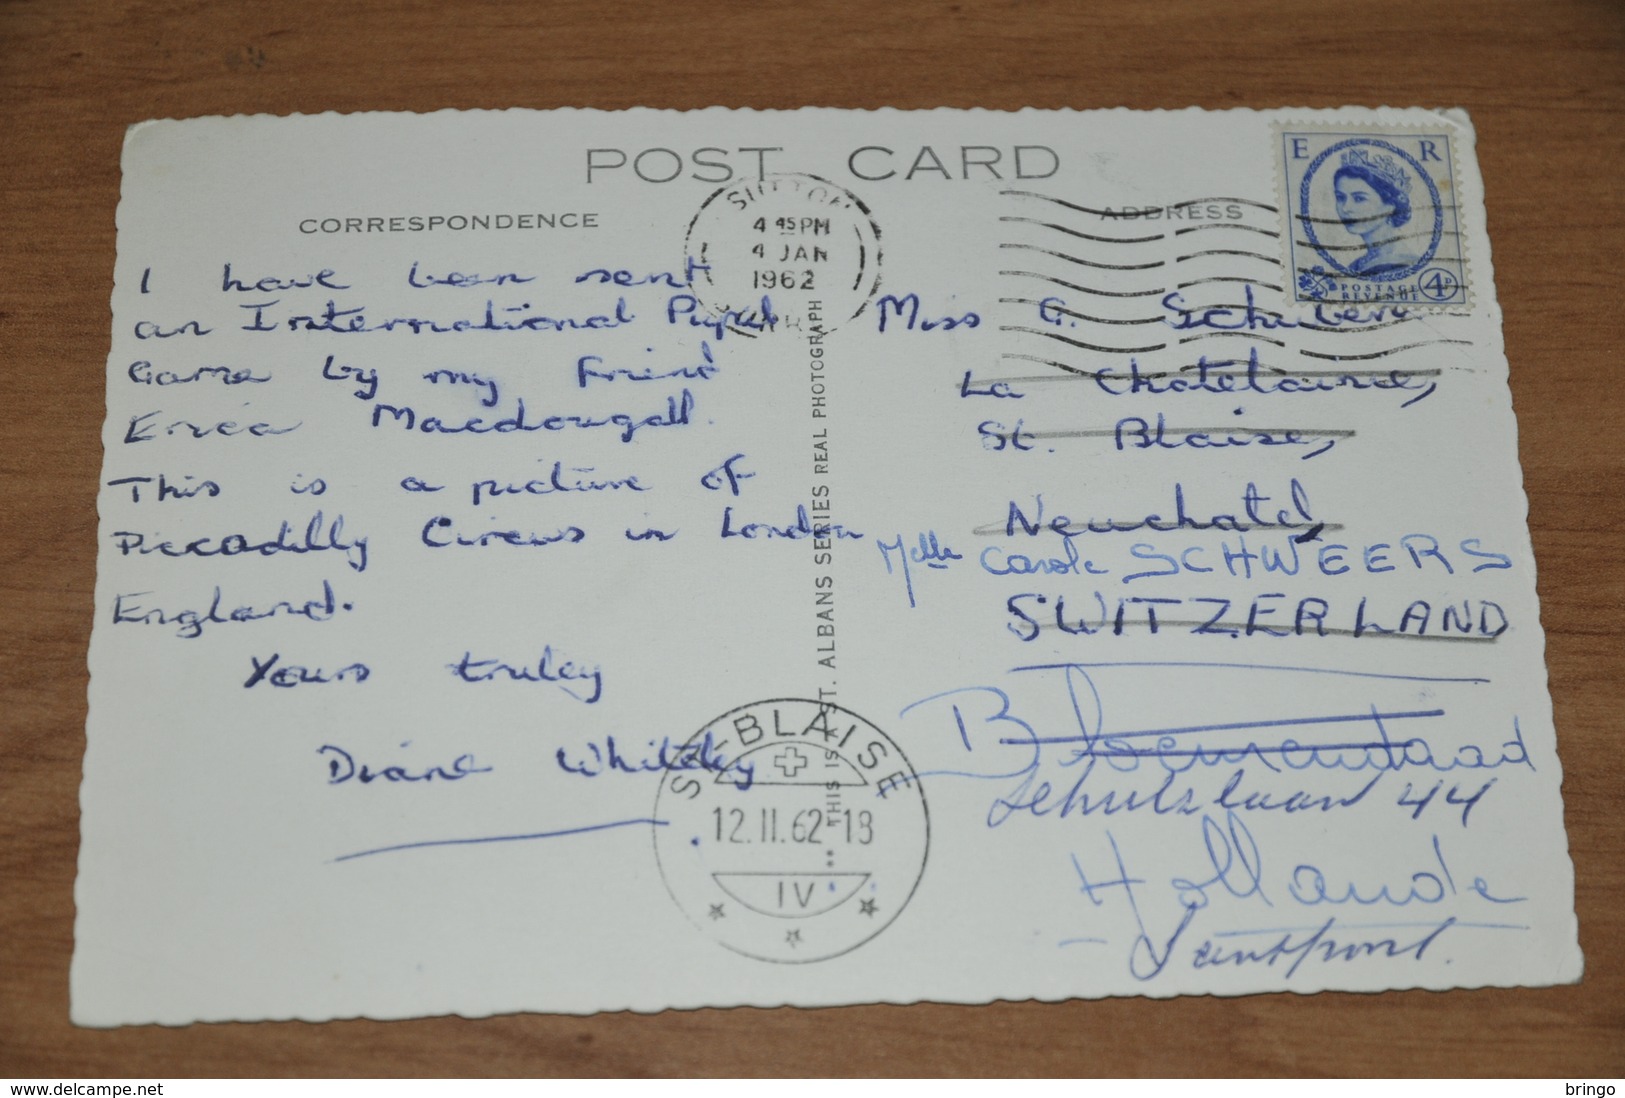 POST CARD
CORRESPONDENCE
ADDRESS
SUTTON
4 45PM
4 JAN
1962
E R
POSTAGE
REVENUE
4D
I have been sent
an International Pupils
Game by my Friend
Erica Macdougall.
This is a picture of
Piccadilly Circus in London
England.
Yours truley
Diane Whitley
THIS IS A ST. ALBANS SERIES REAL PHOTOGRAPH
Miss G.
La Chatelaine,
St. Blaise,
Neuchatel,
Melle Carole SCHWEERS
SWITZERLAND
Bloemendaad
Schulzlaan 44
Hollande
Santpoort.
ST-BLAISE
12.II.62-18
IV
delcampe.net
bringo